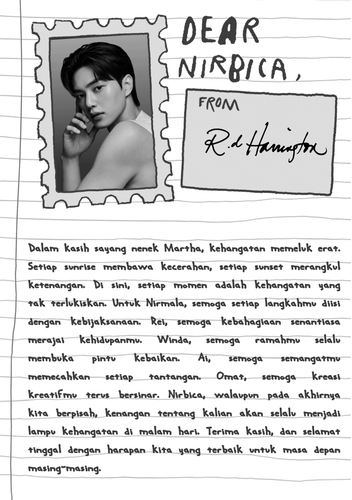 DEAR
NIRBICA,
FROM
R.d Harrington
Dalam kasih sayang nenek Martha, kehangatan memeluk erat.
Setiap sunrise membawa kecerahan, setiap sunset merangkul
ketenangan. Di sini, setiap momen adalah kehangatan yang
tak terlukiskan. Untuk Nirmala, semoga setiap langkahmu diisi
dengan kebijaksanaan. Rei, semoga kebahagiaan senantiasa
merajai kehidupanmu. Winda, semoga ramahmu selalu
membuka pintu kebaikan. Ai, semoga semangatmu
memecahkan setiap tantangan. Omat, semoga kreasi
kreatifmu terus bersinar. Nirbica, walaupun pada akhirnya
kita berpisah, kenangan tentang kalian akan selalu menjadi
lampu kehangatan di malam hari. Terima kasih, dan selamat
tinggal dengan harapan kita yang terbaik untuk masa depan
masing-masing.